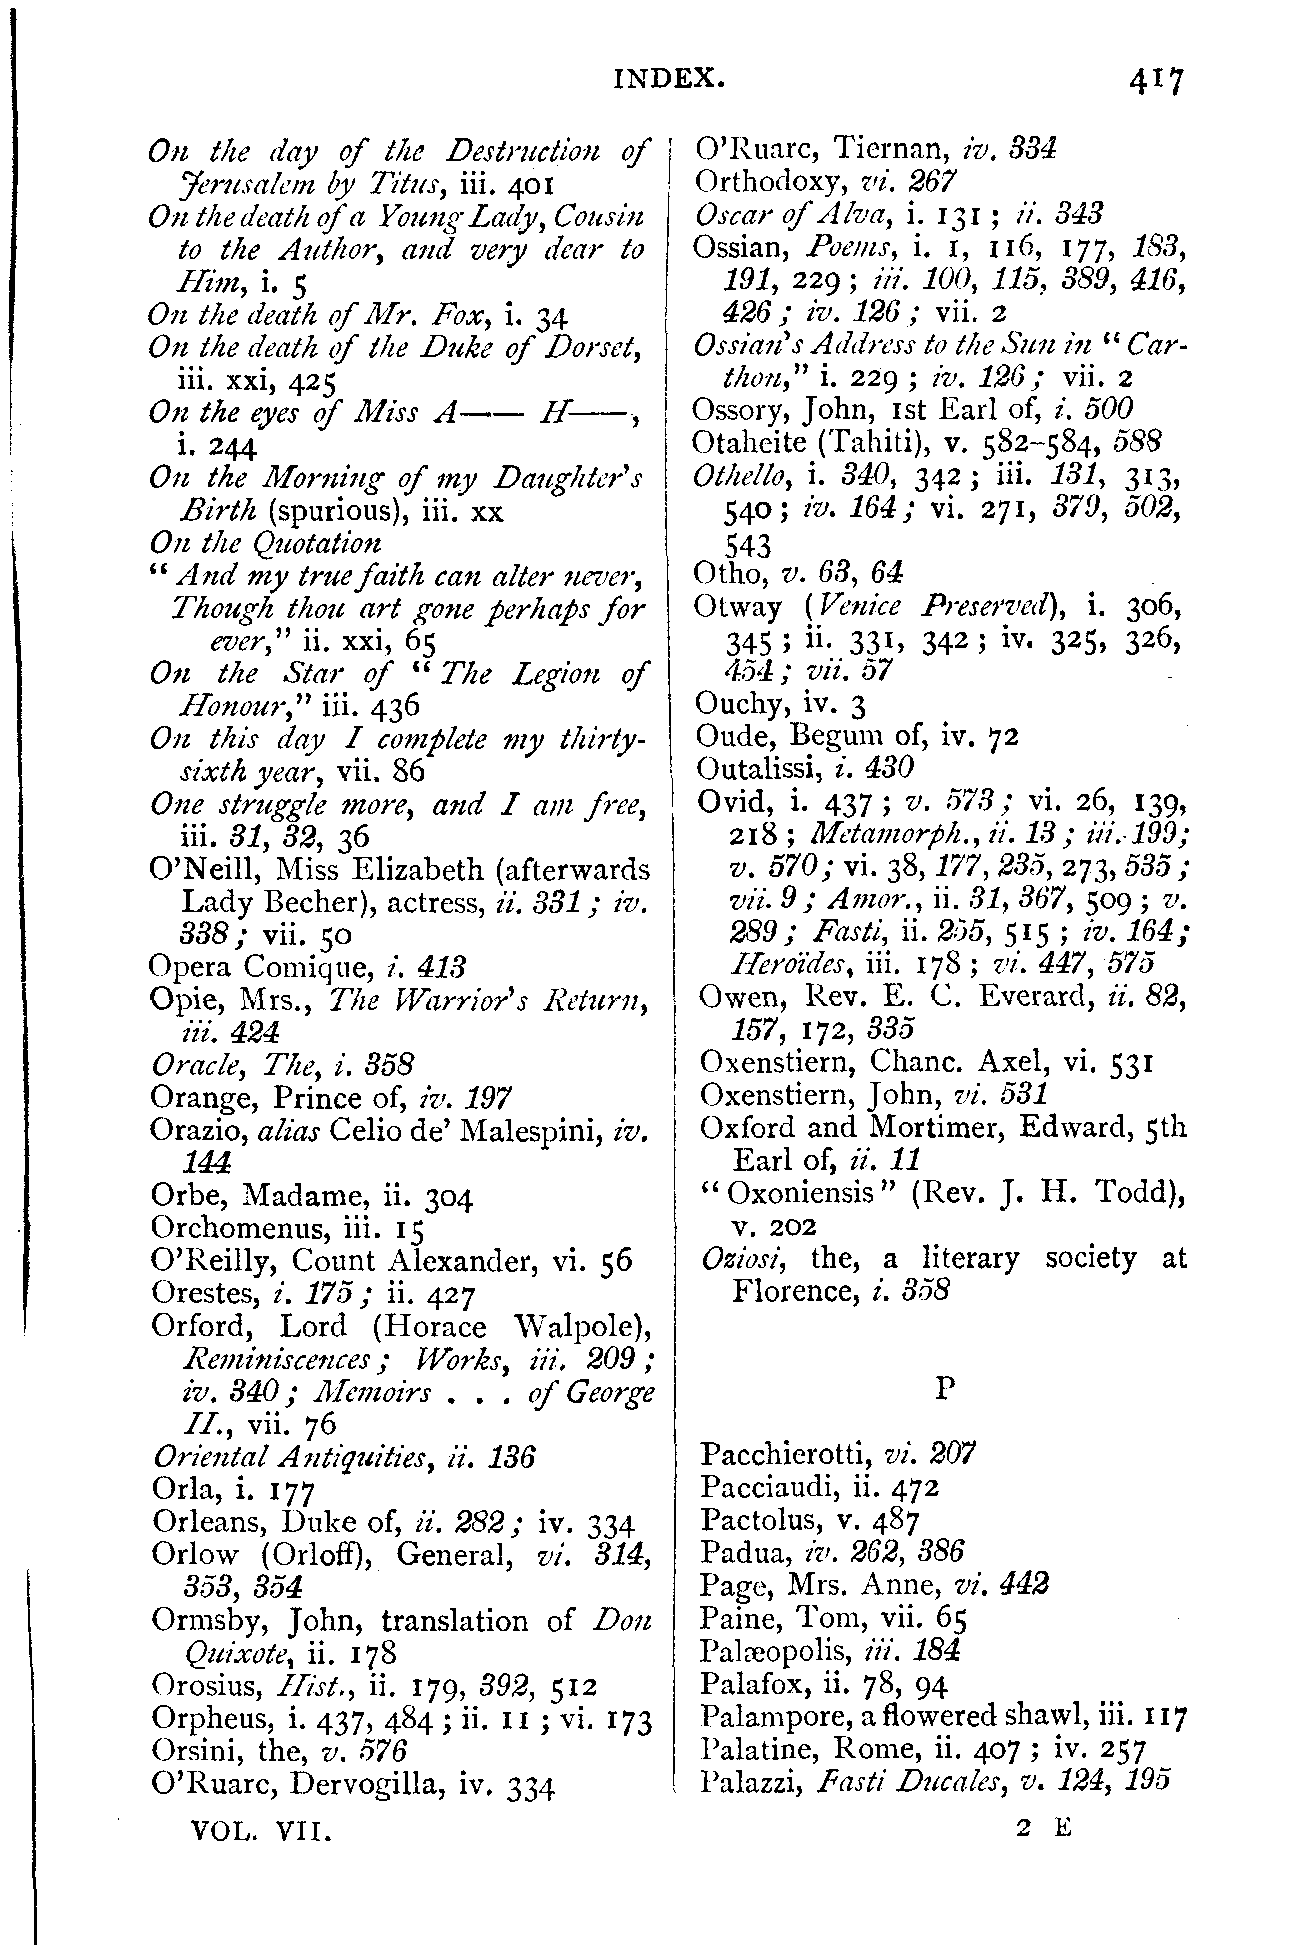 INDEX. 417
On the day of the Destruction of
Jerusalem by Titus, iii. 401
On the death of a Young Lady, Cousin
to the Author, and very dear to
Him, i. 5
On the death of Mr. Fox, i. 34
On the death of the Duke of Dorset,
iii. xxi, 425
On the eyes of Miss A—— H——,
i. 244
On the Morning of my Daughter's
Birth (spurious), iii. xx
On the Quotation
"And my true faith can alter never,
Though thou art gone perhaps for
ever," ii. xxi, 65
On the Star of "The Legion of
Honour," iii. 436
On this day I complete my thirty-
sixth year, vii. 86
One struggle more, and I am free,
iii. 31, 32, 36
O'Neill, Miss Elizabeth (afterwards
Lady Becher), actress, ii. 331; iv.
338; vii. 50
Opera Comique, i. 413
Opie, Mrs., The Warrior's Return,
iii. 424
Oracle, The, i. 358
Orange, Prince of, iv. 197
Orazio, alias Celio de' Malespini, iv.
144
Orbe, Madame, ii. 304
Orchomenus, iii. 15
O'Reilly, Count Alexander, vi. 56
Orestes, i. 175; ii. 427
Orford, Lord (Horace Walpole),
Reminiscences; Works, iii. 209;
iv. 340; Memoirs . . . of George
II., vii. 76
Oriental Antiquities, ii. 136
Orla, i. 177
Orleans, Duke of, ii. 282; iv. 334
Orlow (Orloff), General, vi. 314,
353, 354
Ormsby, John, translation of Don
Quixote, ii. 178
Orosius, Hist., ii. 179, 392, 512
Orpheus, i. 437, 484; ii. 11; vi. 173
Orsini, the, v. 576
O'Ruarc, Dervogilla, iv. 334
O'Ruarc, Tiernan, iv. 334
Orthodoxy, vi. 267
Oscar of Alva, i. 131; ii. 343
Ossian, Poems, i. 1, 116, 177, 183,
191, 229; iii. 100, 115, 389, 416,
426; iv. 126; vii. 2
Ossian's Address to the Sun in "Car-
thon," i. 229; iv. 126; vii. 2
Ossory, John, 1st Earl of, i. 500
Otaheite (Tahiti), v. 582–584, 588
Othello, i. 340, 342; iii. 131, 313,
540; iv. 164; vi. 271, 379, 502,
543
Otho, v. 63, 64
Otway (Venice Preserved), i. 306,
345; ii. 331, 342; iv. 325, 326,
454; vii. 57
Ouchy, iv. 3
Oude, Begum of, iv. 72
Outalissi, i. 430
Ovid, i. 437; v. 573; vi. 26, 139,
218; Metamorph., ii. 13; iii. 199;
v. 570; vi. 38, 177, 235, 273, 535;
vii. 9; Amor., ii. 31, 367, 509; v.
289; Fasti, ii. 255, 515; iv. 164;
Heroïdes, iii. 178; vi. 447, 575
Owen, Rev. E. C. Everard, ii. 82,
157, 172, 335
Oxenstiern, Chanc. Axel, vi. 531
Oxenstiern, John, vi. 531
Oxford and Mortimer, Edward, 5th
Earl of, ii. 11
"Oxoniensis" (Rev. J. H. Todd),
v. 202
Oziosi, the, a literary society at
Florence, i. 358
P
Pacchierotti, vi. 207
Pacciaudi, ii. 472
Pactolus, v. 487
Padua, iv. 262, 386
Page, Mrs. Anne, vi. 442
Paine, Tom, vii. 65
Palæopolis, iii. 184
Palafox, ii. 78, 94
Palampore, a flowered shawl, iii. 117
Palatine, Rome, ii. 407; iv. 257
Palazzi, Fasti Ducales, v. 124, 195
VOL. VII. 2 E